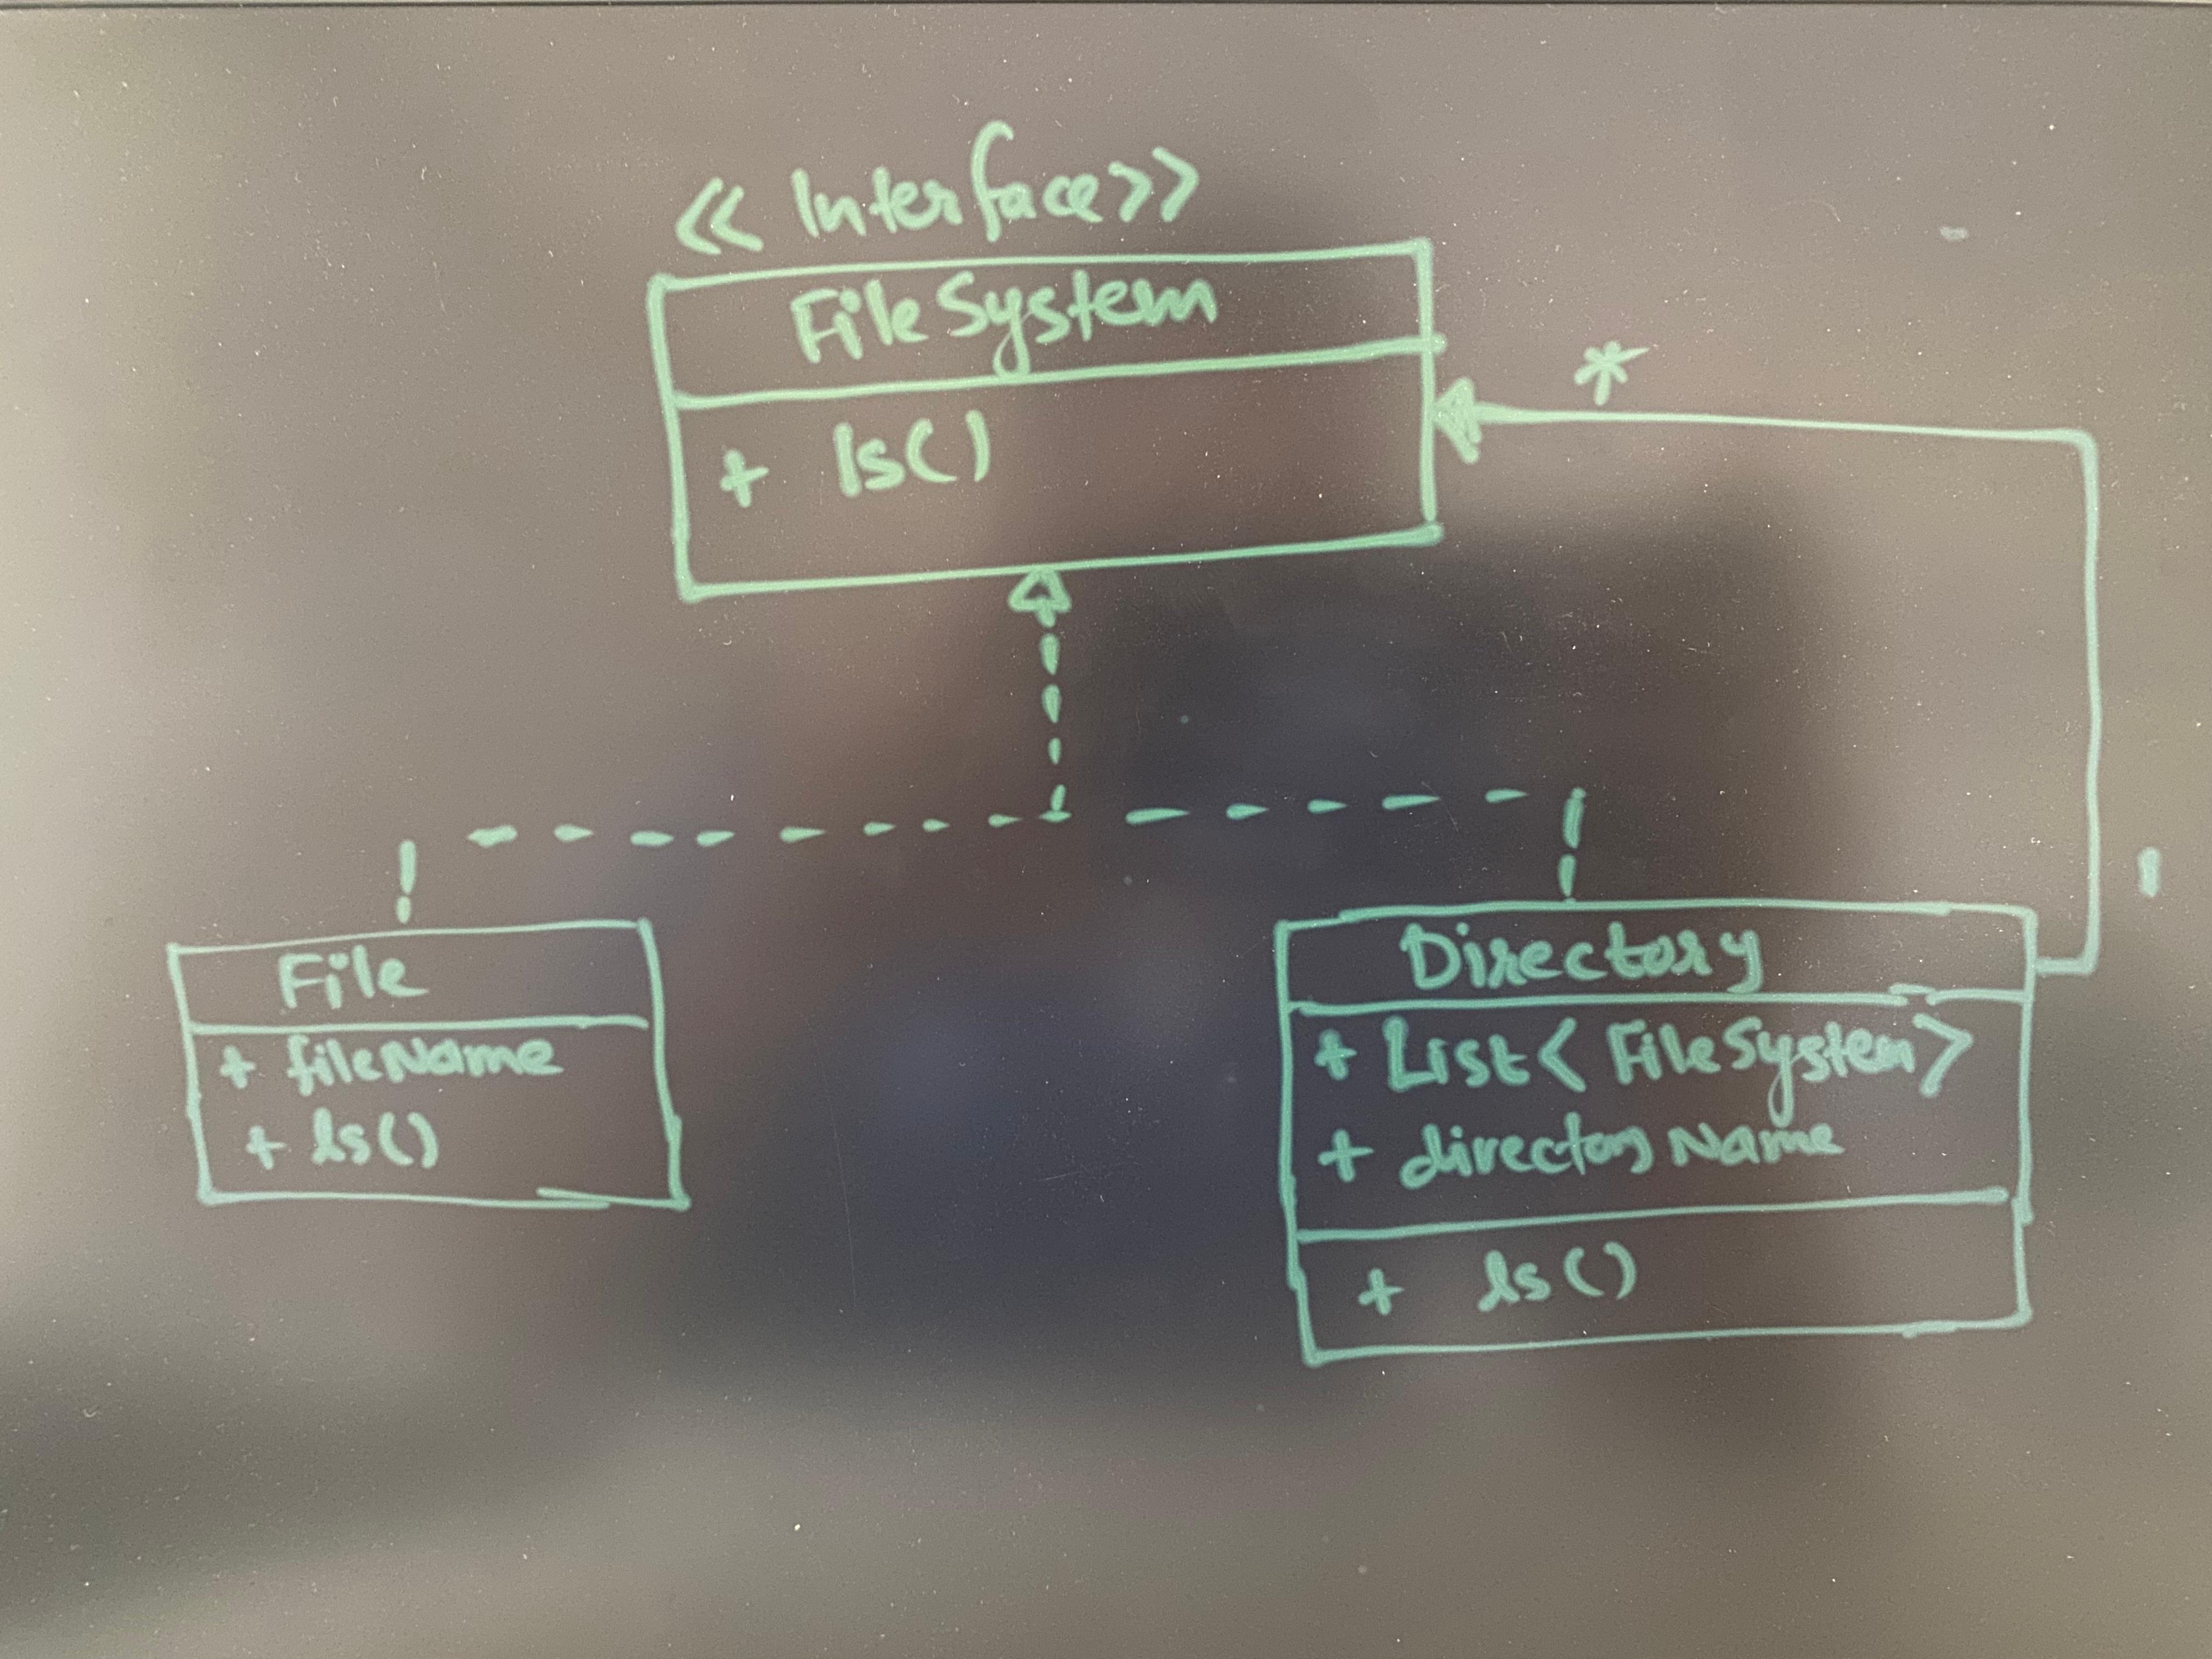 << Interface>>
FileSystem
+ ls()
*
1
File
+ fileName
+ ls()
Directory
+ List< FileSystem>
+ directory Name
+ ls()